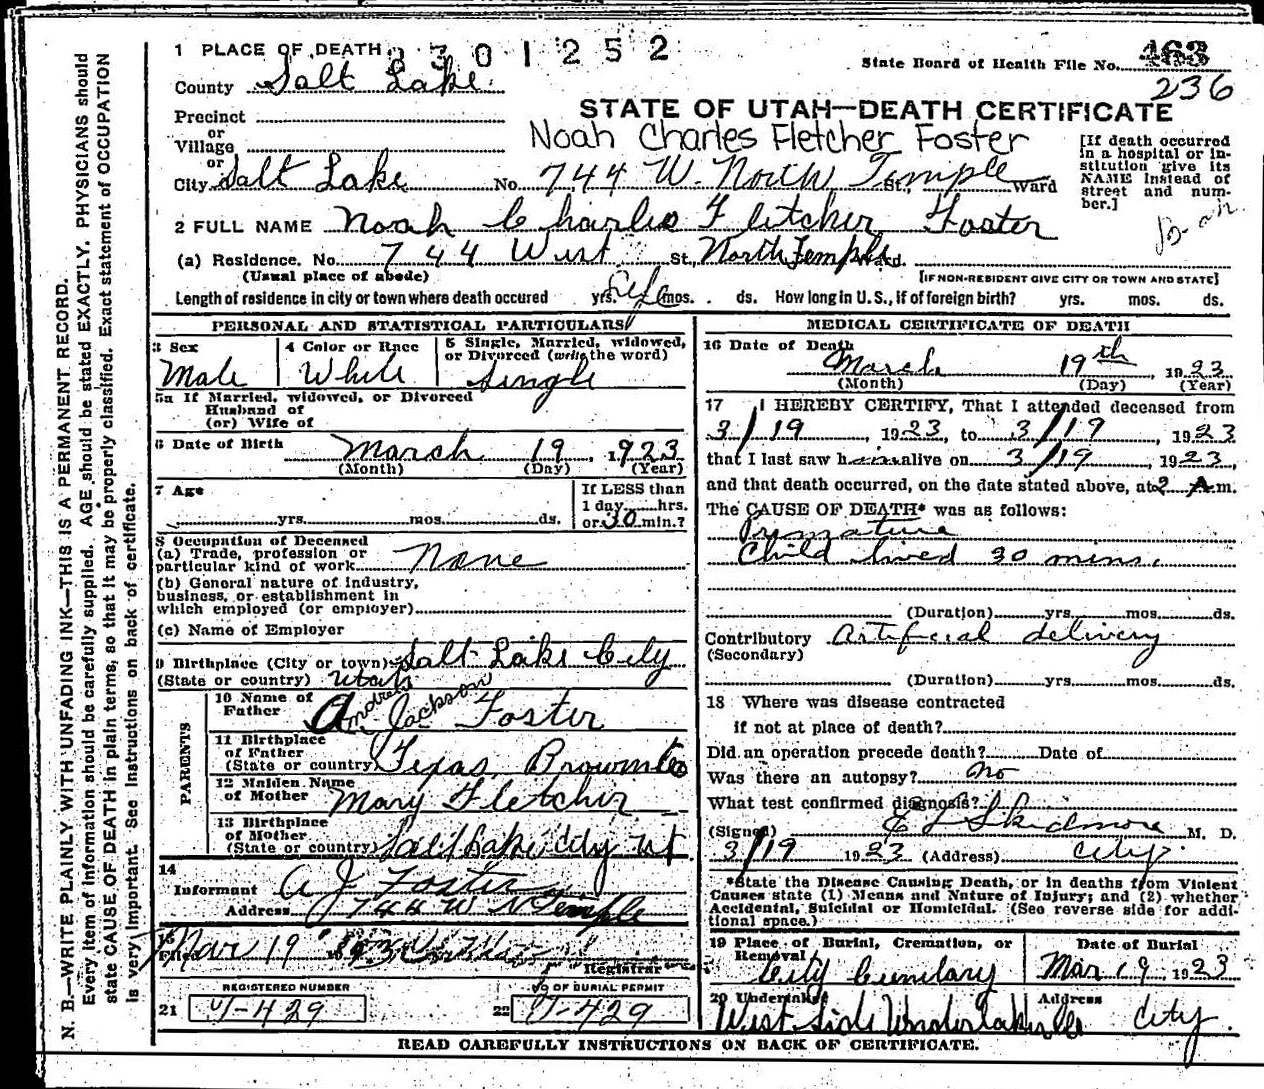 1 PLACE OF DEATH 2301252
State Board of Health File No. 463
County Salt Lake
236
STATE OF UTAH—DEATH CERTIFICATE
Precinct
or
Village
Noah Charles Fletcher Foster
[If death occurred in a hospital or institution give its NAME instead of street and number.]
or
City Salt Lake No. 744 W. North Temple St. Ward
2 FULL NAME Noah Charles Fletcher Foster
(a) Residence. No. 744 West St. North Temple Ward.
(Usual place of abode) [IF NON-RESIDENT GIVE CITY OR TOWN AND STATE]
Length of residence in city or town where death occured yrs. Life mos. ds. How long in U. S., if of foreign birth? yrs. mos. ds.
PERSONAL AND STATISTICAL PARTICULARS
3 Sex
Male
4 Color or Race
White
5 Single, Married, widowed, or Divorced (write the word)
Single
5a If Married, widowed, or Divorced
Husband of
(or) Wife of
6 Date of Birth March 19, 1923
(Month) (Day) (Year)
7 Age
yrs. mos. ds.
If LESS than
1 day hrs.
or 30 min.?
8 Occupation of Deceased
(a) Trade, profession or
particular kind of work None
(b) General nature of industry,
business, or establishment in
which employed (or employer)
(c) Name of Employer
9 Birthplace (City or town) Salt Lake City
(State or country) Utah
PARENTS
10 Name of Father Andrew Jackson Foster
11 Birthplace of Father
(State or country) Texas,
12 Maiden Name of Mother Mary Fletcher
13 Birthplace of Mother
(State or country) Salt Lake City Ut
14
Informant A J Foster
Address 744 W N Temple
15
Filed Mar 19
Registrar
REGISTERED NUMBER
21 J-429
NO OF BURIAL PERMIT
22 J-429
MEDICAL CERTIFICATE OF DEATH
16 Date of Death
March 19th, 1923
(Month) (Day) (Year)
17 I HEREBY CERTIFY, That I attended deceased from
3/19, 1923, to 3/19, 1923
that I last saw him alive on 3/19, 1923,
and that death occurred, on the date stated above, at 2 A.m.
The CAUSE OF DEATH* was as follows:
Premature
Child lived 30 mins.
(Duration) yrs. mos. ds.
Contributory Artificial delivery
(Secondary)
(Duration) yrs. mos. ds.
18 Where was disease contracted
if not at place of death?
Did an operation precede death? Date of
Was there an autopsy? no
What test confirmed diagnosis?
(Signed) E L Skidmore M. D.
3/19 1923 (Address) City.
*State the Disease Causing Death, or in deaths from Violent
Causes state (1) Means and Nature of Injury; and (2) whether
Accidental, Suicidal or Homicidal. (See reverse side for additional space.)
19 Place of Burial, Cremation, or Removal
City Cemetary
Date of Burial
Mar 19, 1923
20 Undertaker
West Side Undertakers
Address
City.
READ CAREFULLY INSTRUCTIONS ON BACK OF CERTIFICATE.
N. B.—WRITE PLAINLY WITH UNFADING INK—THIS IS A PERMANENT RECORD.
Every item of information should be carefully supplied. AGE should be stated EXACTLY. PHYSICIANS should
state CAUSE OF DEATH in plain terms, so that it may be properly classified. Exact statement of OCCUPATION
is very important. See instructions on back of certificate.